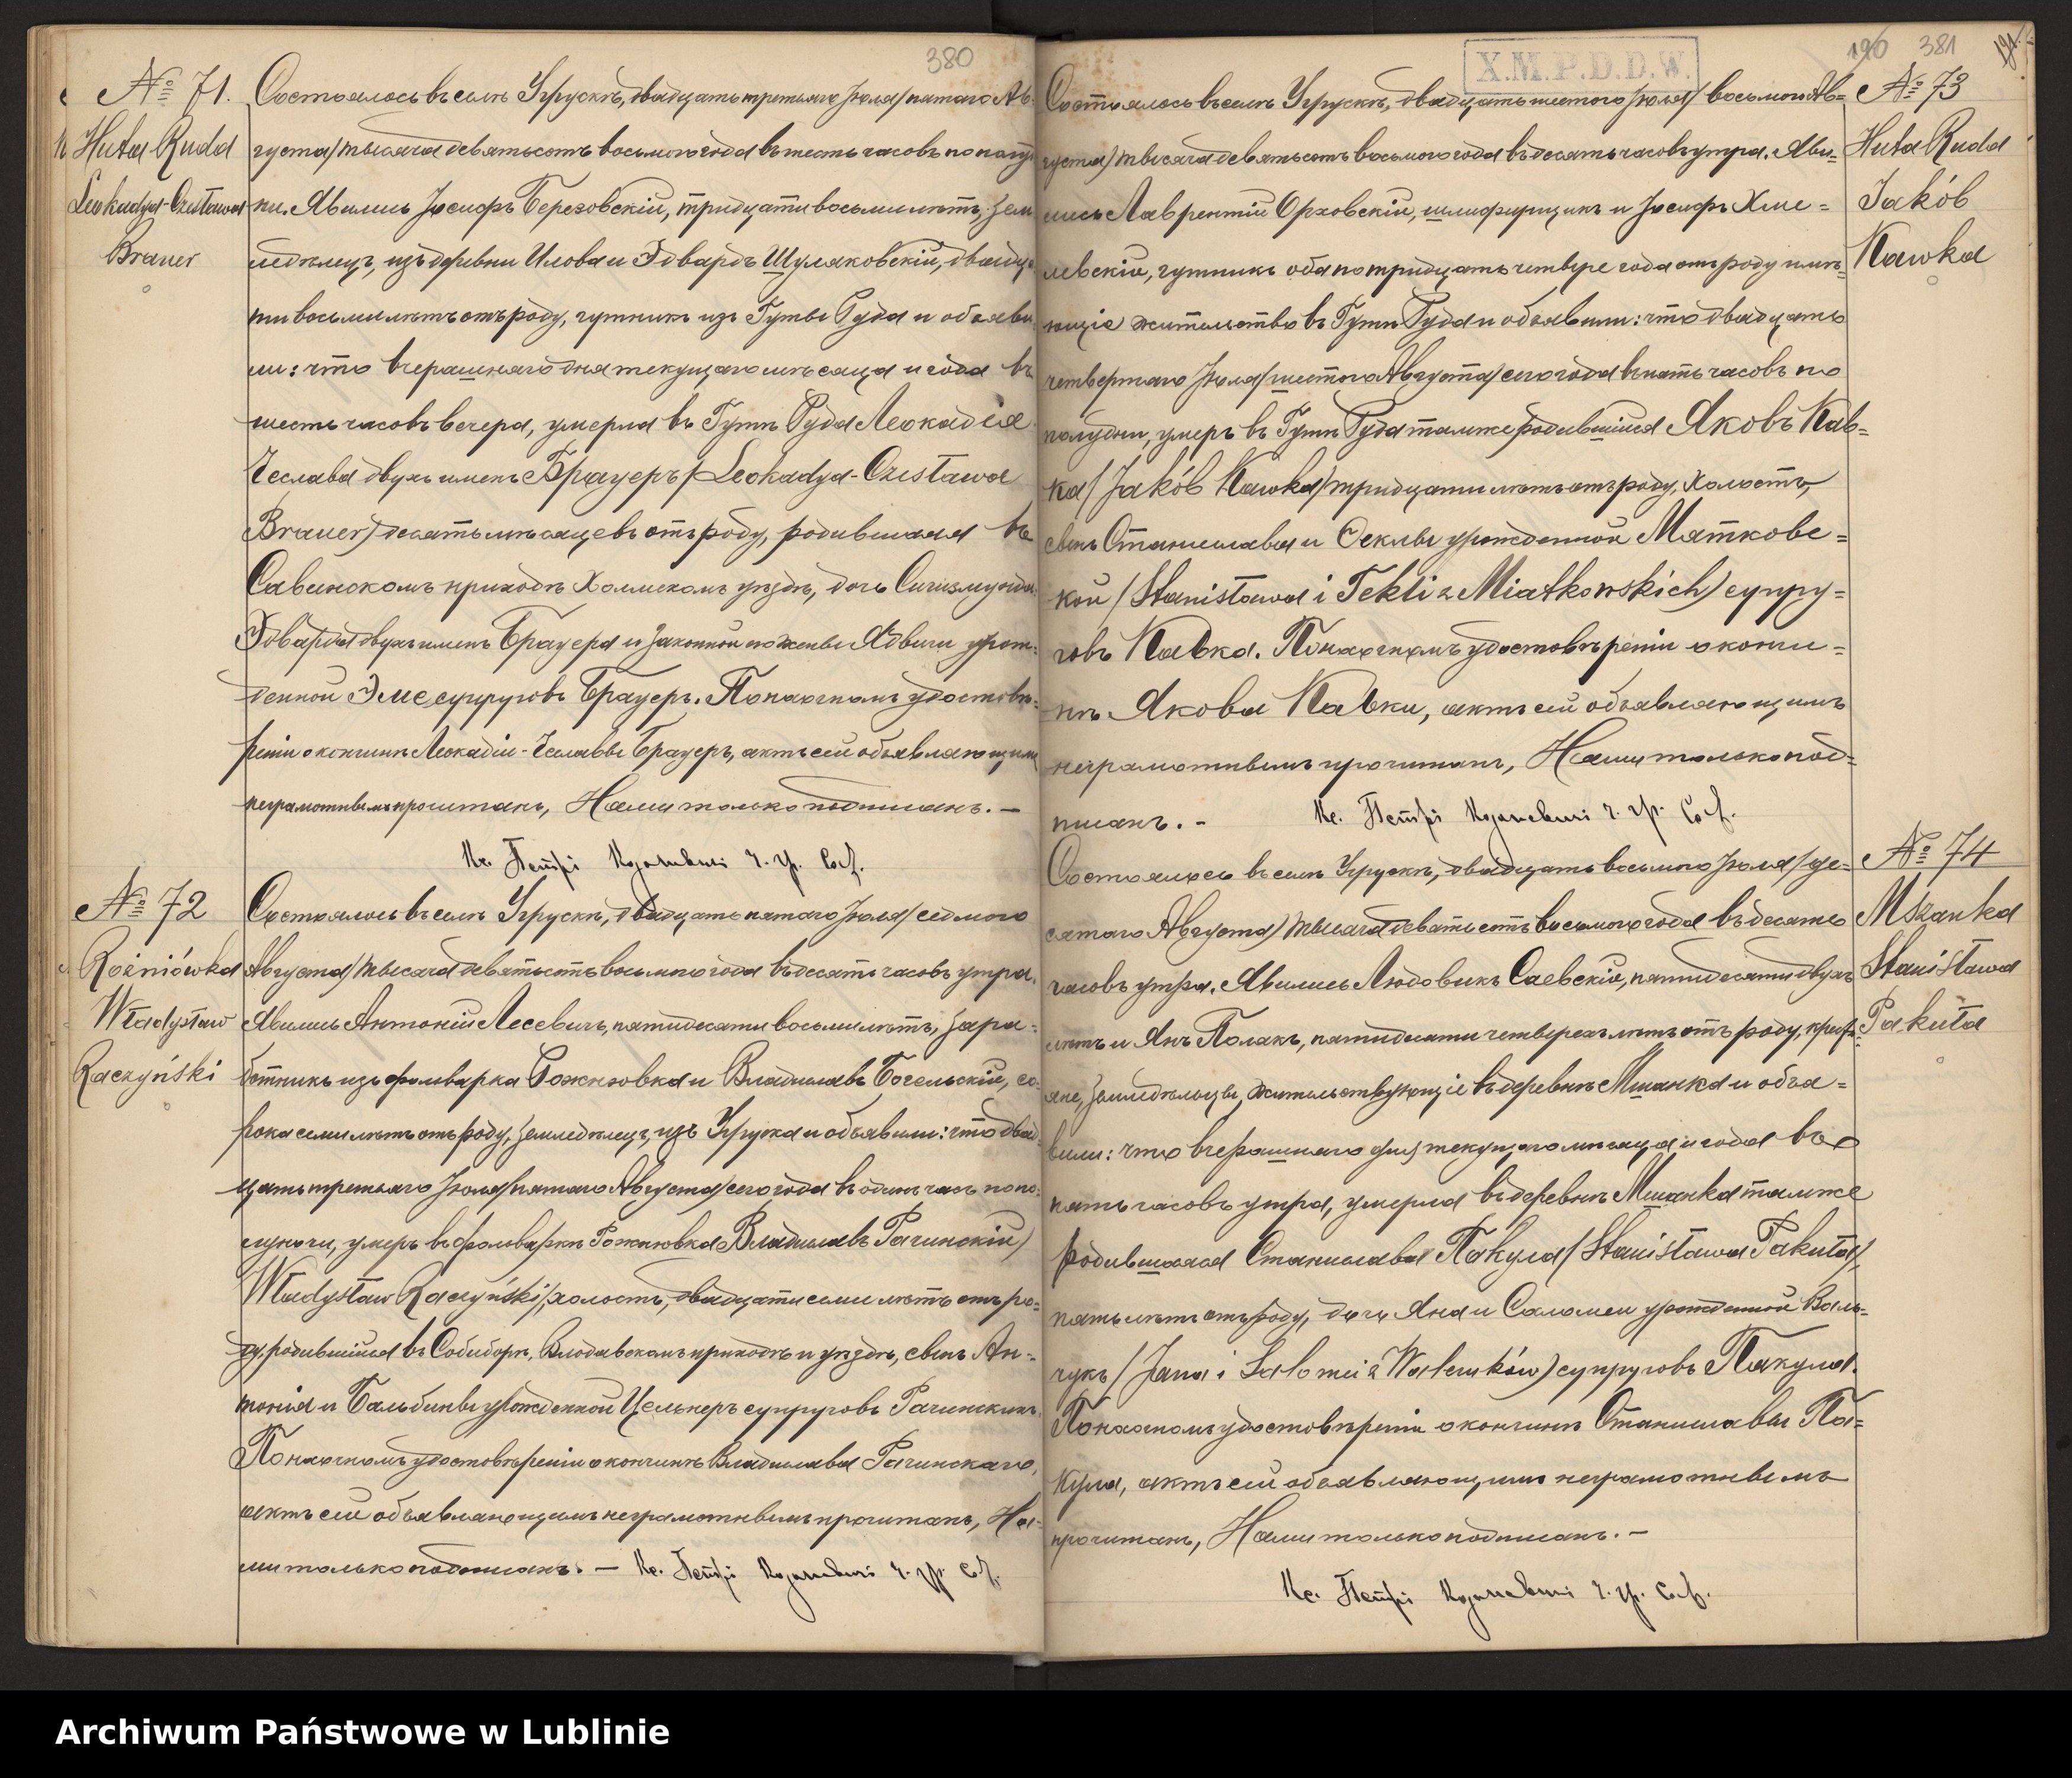 380
№ 71.
Huta Ruda
Leokadya-Czesława
Brauer
Состоялось въ селѣ Угрускѣ, двадцать третьяго Іюля/пятаго Ав-
густа/тысяча девятьсотъ восьмого года въ шесть часовъ по полуд-
ни. Явились Іосифъ Березовскій, тридцати восьми лѣтъ, зем-
ледѣлецъ, изъ деревни Илова и Эдвардъ Шуляковскій, двадца-
ти восьми лѣтъ отъ роду, гутникъ изъ Гуты Руда и объяви-
ли: что вчерашняго дня текущаго мѣсяца и года въ
шесть часовъ вечера, умерла въ Гутѣ Руда Леокадія
Чеслава двухъ именъ Брауеръ/Leokadya-Czesława
Brauer) десять мѣсяцевъ отъ роду, родившаяся въ
Савинскомъ приходѣ Холмскомъ уѣздѣ, дочь Сигизмунда
Эдварда двухъ именъ Брауера и законной его жены Ядвиги урож-
денной Эме супруговъ Брауеръ. По наочномъ удостовѣ-
реніи о кончинѣ Леокадіи-Чеславы Брауеръ, актъ сей объявляющимъ
неграмотнымъ прочитанъ, Нами только подписанъ. —
Кс.
№ 72
Rożniówka
Władysław
Raczyński
Состоялось въ селѣ Угрускѣ, двадцать пятаго Іюля/седмого
Августа/тысяча девятьсотъ восьмого года въ десять часовъ утра.
Явились Антоній Лесевичъ, пятидесяти восьми лѣтъ, зара-
ботникъ изъ фольварка Рожнювка и Владиславъ Богельскій, со-
рока семи лѣтъ отъ роду, земледѣлецъ, изъ Угруска и объявили: что двад-
цать третьяго Іюля/пятаго Августа/сего года въ одинъ часъ по по-
луночи, умеръ въ фольваркѣ Рожнювка Владиславъ Рачинскій/
Władysław Raczyński/, холостъ, двадцати семи лѣтъ отъ ро-
ду, родившійся въ Собиборѣ, Влодавскомъ приходѣ и уѣздѣ, сынъ Ан-
тонія и Бальбины урожденной Цельнеръ супруговъ Рачинскихъ.
По наочномъ удостовѣреніи о кончинѣ Владислава Рачинскаго,
актъ сей объявляющимъ неграмотнымъ прочитанъ, На-
ми только подписанъ. — Кс.
X.M.P.D.D.W.
190 381
№ 73
Huta Ruda
Jakób
Kawka
Состоялось въ селѣ Угрускѣ, двадцать шестого Іюля/восьмого Ав-
густа/тысяча девятьсотъ восьмого года въ десять часовъ утра. Яви-
лись Лаврентій Орховскій, шлифирщикъ и Іосифъ Хме-
левскій, гутникъ оба по тридцать четыре года отъ роду имѣ-
ющіе жительство въ Гутѣ Руда и объявили: что двадцать
четвертаго Іюля/шестого Августа/сего года въ пять часовъ по
полудни, умеръ въ Гутѣ Руда тамже родившійся Яковъ Кав-
ка/Jakób Kawka/тридцати лѣтъ отъ роду, холостъ,
сынъ Станислава и Теклы урожденной Мятковс-
кой/Stanisława i Tekli z Miatkowskich) супру-
говъ Кавка. По наочномъ удостовѣреніи о кончи-
нѣ Якова Кавки, актъ сей объявляющимъ
неграмотнымъ прочитанъ, Нами только под-
писанъ. — Кс.
№ 74
Mszanka
Stanisława
Pakuła
Состоялось въ селѣ Угрускѣ, двадцать восьмого Іюля/де-
сятаго Августа/тысяча девятьсотъ восьмого года въ десять
часовъ утра. Явились Людовикъ Саевскій, пятидесяти двухъ
лѣтъ и Янъ Полакъ, пятидесяти четверехъ лѣтъ отъ роду, кресть-
яне, земледѣльцы, жительствующіе въ деревнѣ Мшанка и объя-
вили: что вчерашняго дня текущаго мѣсяца и года въ
пять часовъ утра, умерла въ деревнѣ Мшанка тамже
родившаяся Станислава Пакула/Stanisława Pakuła/,
пять лѣтъ отъ роду, дочь Яна и Саломеи урожденной Валь-
чукъ/Jana i Salomei z Walczuków) супруговъ Пакула.
По наочномъ удостовѣреніи о кончинѣ Станиславы Па-
кула, актъ сей объявляющимъ неграмотнымъ
прочитанъ, Нами только подписанъ. —
Кс.
Archiwum Państwowe w Lublinie